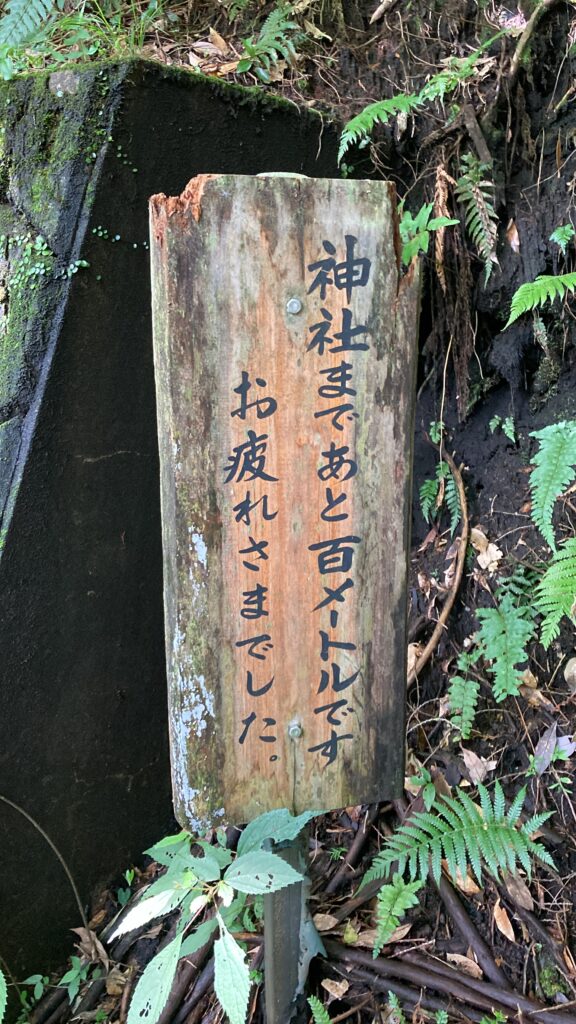 神社まであと百メートルです
お疲れさまでした。